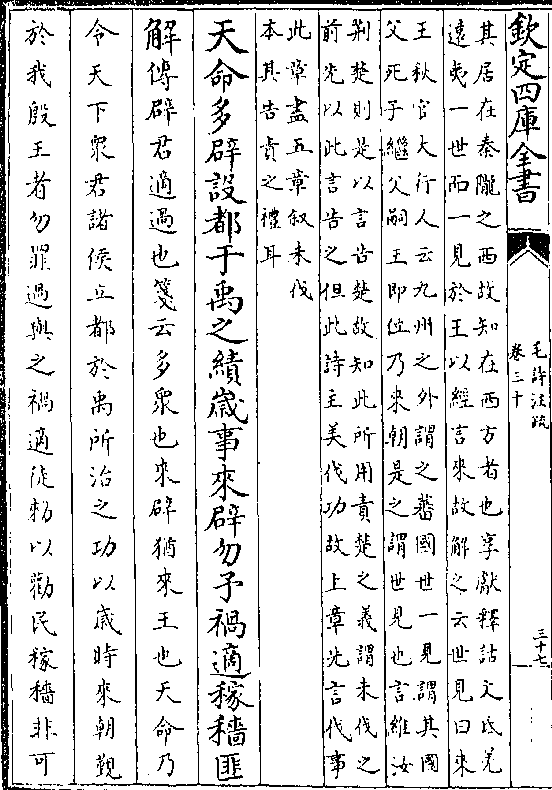 欽定四庫全書
毛詩注疏
卷三十
三十七
其居在秦隴之西故知在西方者也享獻釋詁文氐羌
遠夷一世而一見於王以經言來故解之云世見曰來
王秋官大行人云九州之外謂之蕃國世一見謂其國
父死子繼父嗣王即位乃來朝是之謂世見也言維汝
荆楚則是以言告楚故知此所用責楚之義謂未伐之
前先以此言告之但此詩主美伐功故上章先言伐事
此章盡五章叙未伐
本其告責之禮耳
天命多辟設都于禹之績歲事來辟勿予禍適稼穡匪
解傳辟君適過也箋云多衆也來辟猶來王也天命乃
令天下衆君諸侯立都於禹所治之功以歲時來朝覲
於我殷王者勿罪過與之禍適徒勑以勸民稼穡非可